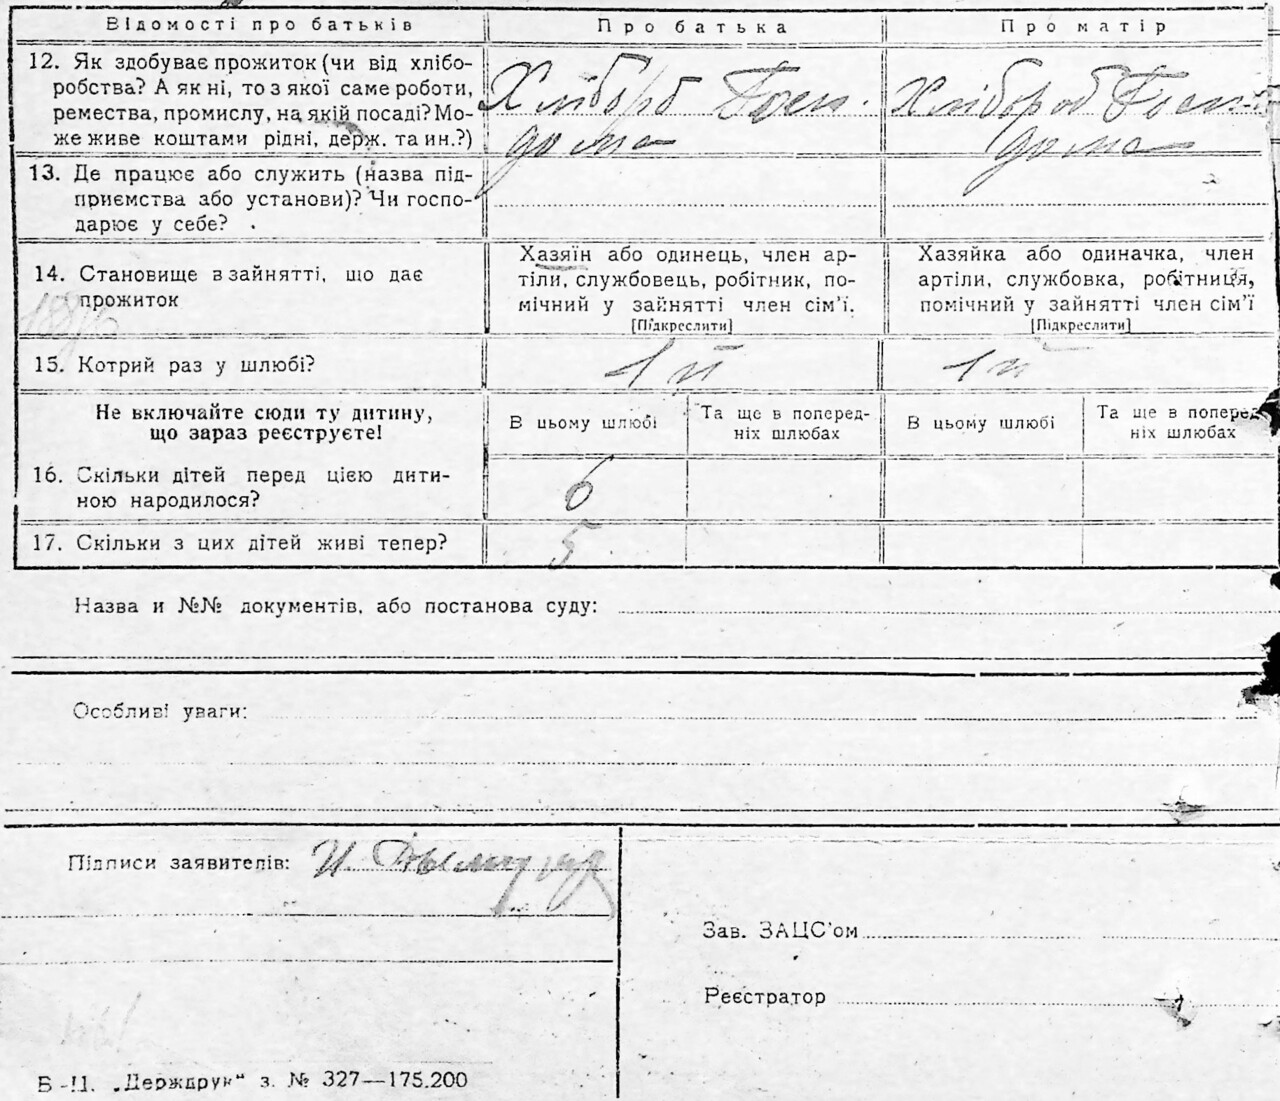 Відомості про батьків
Про батька
Про матір
12. Як здобуває прожиток (чи від хлібо-
робства? А як ні, то з якої саме роботи,
ремества, промислу, на якій посаді? Мо-
же живе коштами рідні, держ. та ин.?)
Хлібороб
дома
Хлібороб
дома
13. Де працює або служить (назва під-
приємства або установи)? Чи госпо-
дарює у себе?
14. Становище в зайнятті, що дає
прожиток
Хазяїн або одинець, член ар-
тіли, службовець, робітник, по-
мічний у зайнятті член сім'ї.
[Підкреслити]
Хазяйка або одиначка, член
артіли, службовка, робітниця,
помічний у зайнятті член сім'ї
[Підкреслити]
15. Котрий раз у шлюбі?
1й
1й
Не включайте сюди ту дитину,
що зараз реєструєте!
В цьому шлюбі
Та ще в попередніх шлюбах
В цьому шлюбі
Та ще в поперед-
ніх шлюбах
16. Скільки дітей перед цією дити-
ною народилося?
6
17. Скільки з цих дітей живі тепер?
5
Назва и №№ документів, або постанова суду:
Особливі уваги:
Підписи заявителів: И.
Зав. ЗАЦС'ом
Реєстратор
Б-11. „Держдрук“ з. № 327—175.200